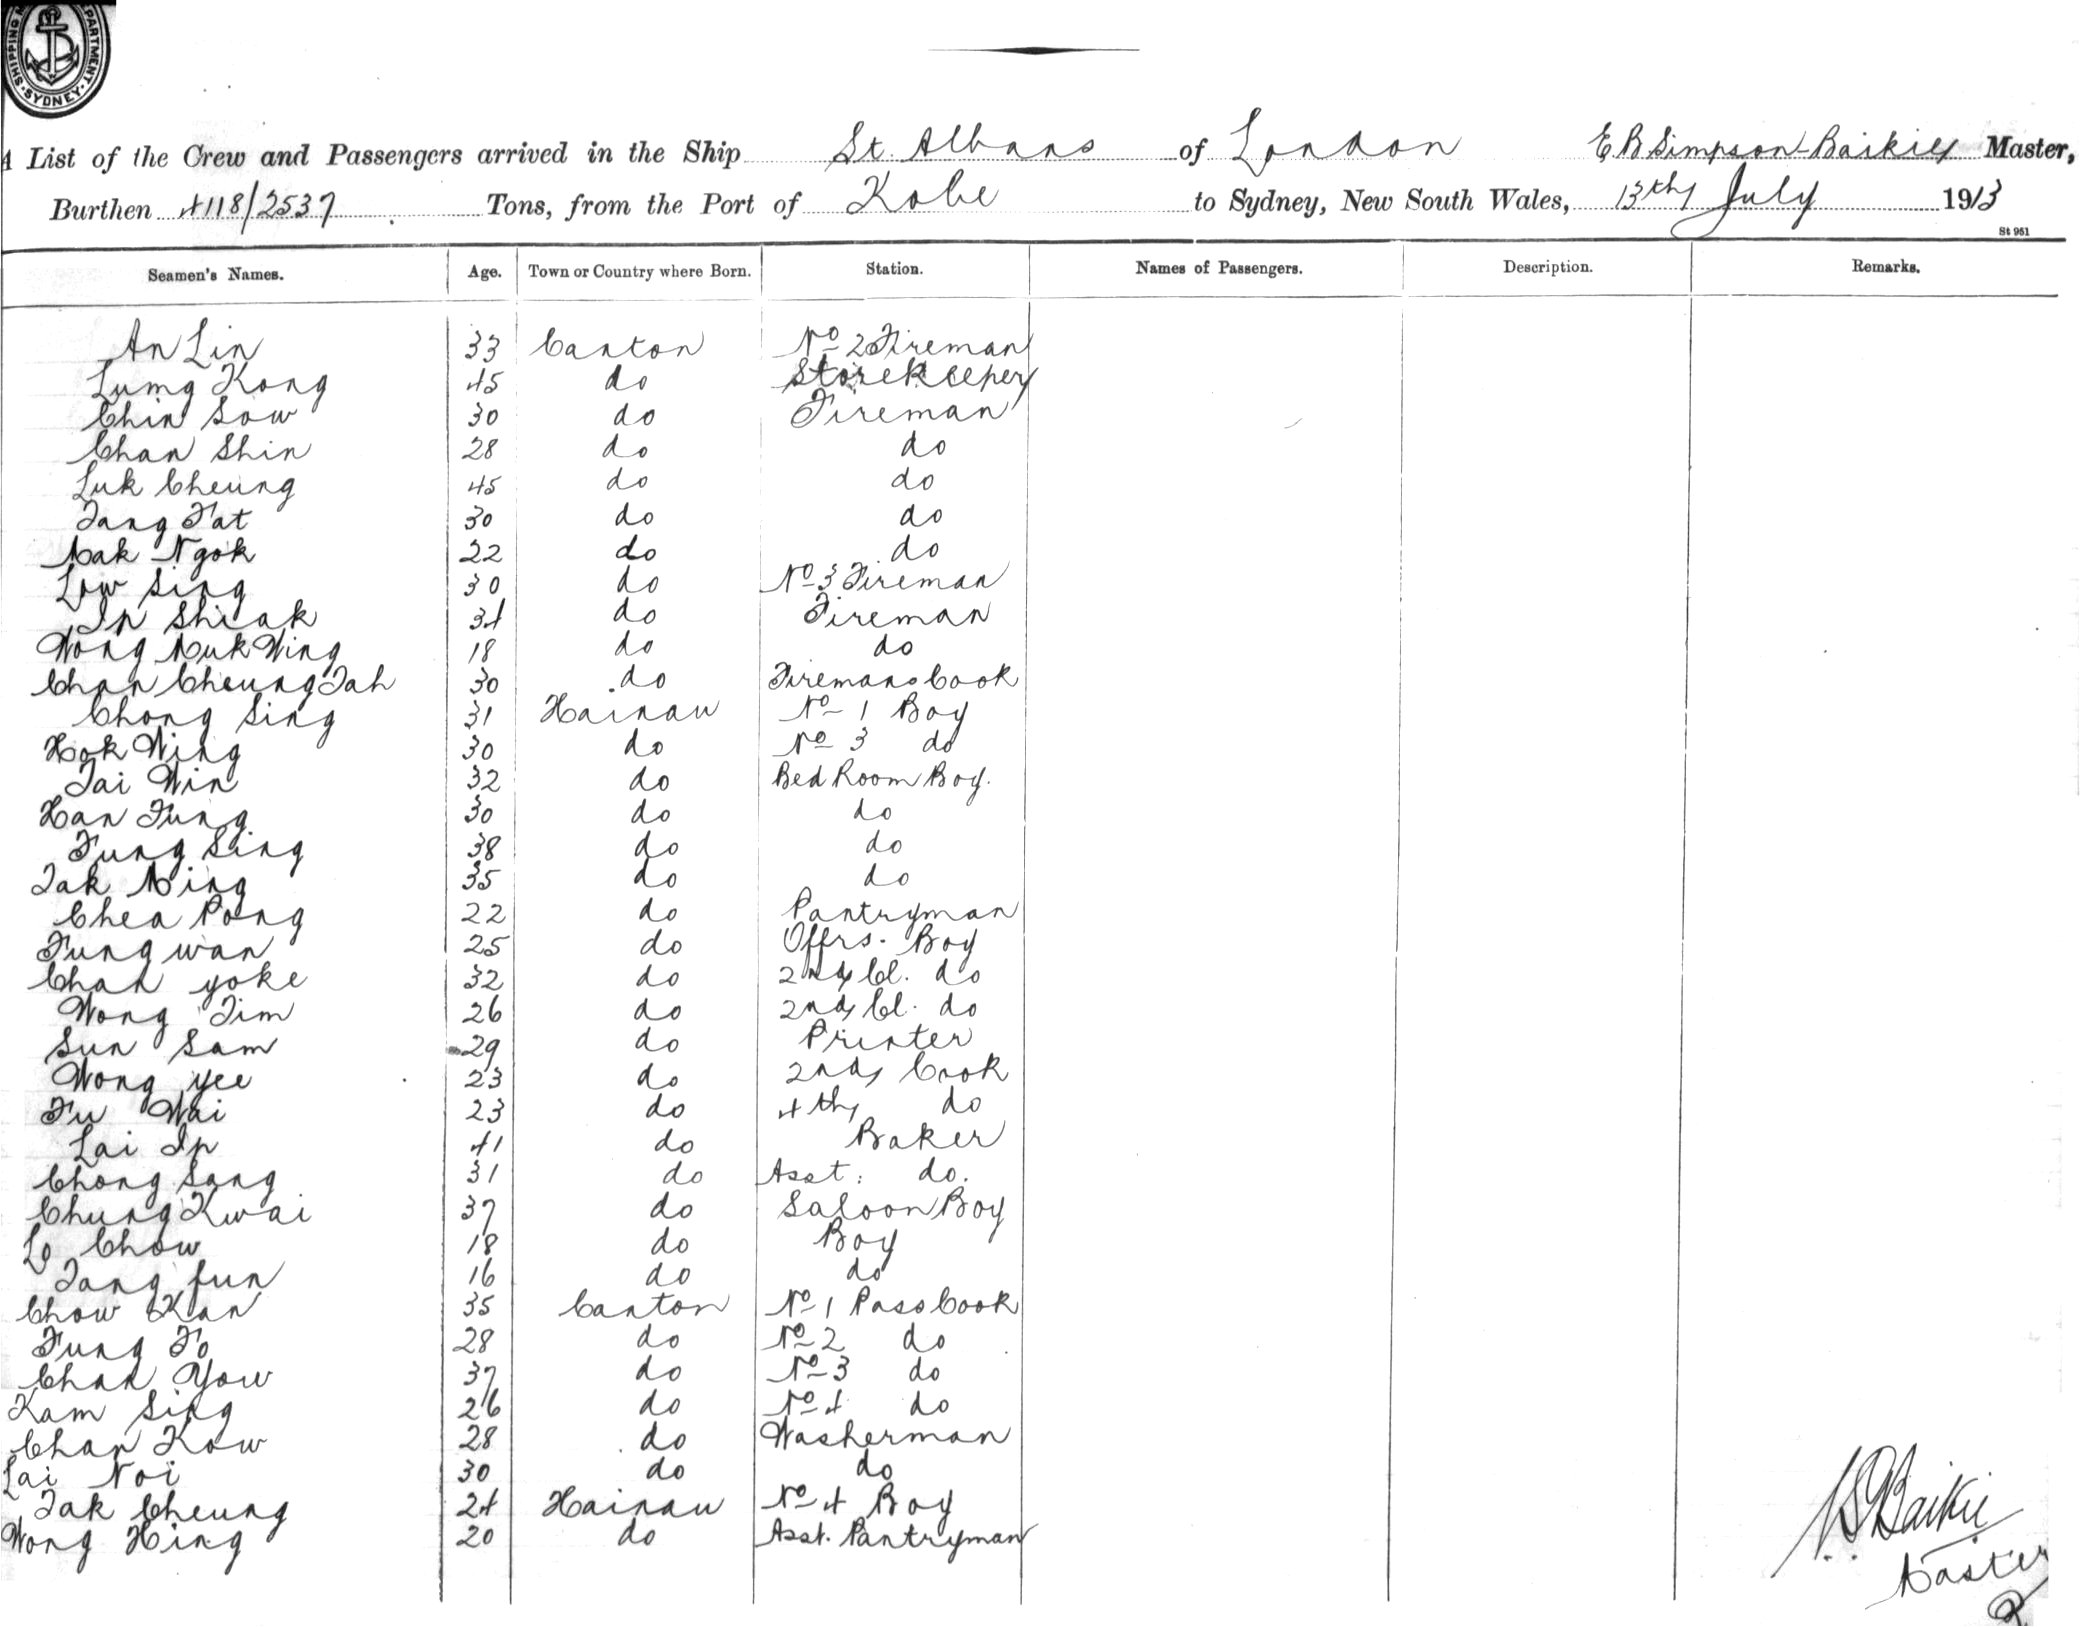 SHIPPING DEPARTMENT. SYDNEY.
A List of the Crew and Passengers arrived in the Ship St. Albans of London E B Simpson-Baikie Master,
Burthen 4118/2537 Tons, from the Port of Kobe to Sydney, New South Wales, 13th July 1913
St 961
Seamen's Names. Age. Town or Country where Born. Station. Names of Passengers. Description. Remarks.
An Lin 33 Canton No 2 Fireman
Lumg Kong 45 do Storekeeper
Chin Sow 30 do Fireman
Chan Shin 28 do do
Luk Cheung 45 do do
Tang Fat 30 do do
Mak Ngok 22 do do
Low Sing 30 do No 3 Fireman
Ip Shiak 34 do Fireman
Wong Muk Wing 18 do do
Chan Cheung Tah 30 do Firemans Cook
Chong Sing 31 Hainau No 1 Boy
Hok Wing 30 do No 3 do
Tai Win 32 do Bed Room Boy.
Han Fung 30 do do
Fung Sing 38 do do
Tak Ming 35 do do
Chea Pong 22 do Pantryman
Fung wan 25 do Offrs. Boy
Chan yoke 32 do 2nd Cl. do
Wong Tim 26 do 2nd Cl. do
Sun Sam 29 do Printer
Wong yee 23 do 2nd Cook
Fu Wai 23 do 4th do
Lai Ip 41 do Baker
Chong Sang 31 do Asst. do.
Chung Kwai 37 do Saloon Boy
Lo Chow 18 do Boy
Tang fun 16 do do
Chow Kan 35 Canton No 1 Pass Cook
Fung Fo 28 do No 2 do
Chan Yow 37 do No 3 do
Kam Sing 26 do No 4 do
Chan Kow 28 do Washerman
Lai Noi 30 do do
Tak Cheung 24 Hainau No 4 Boy
Wong Hing 20 do Asst. Pantryman
Baikie
Master